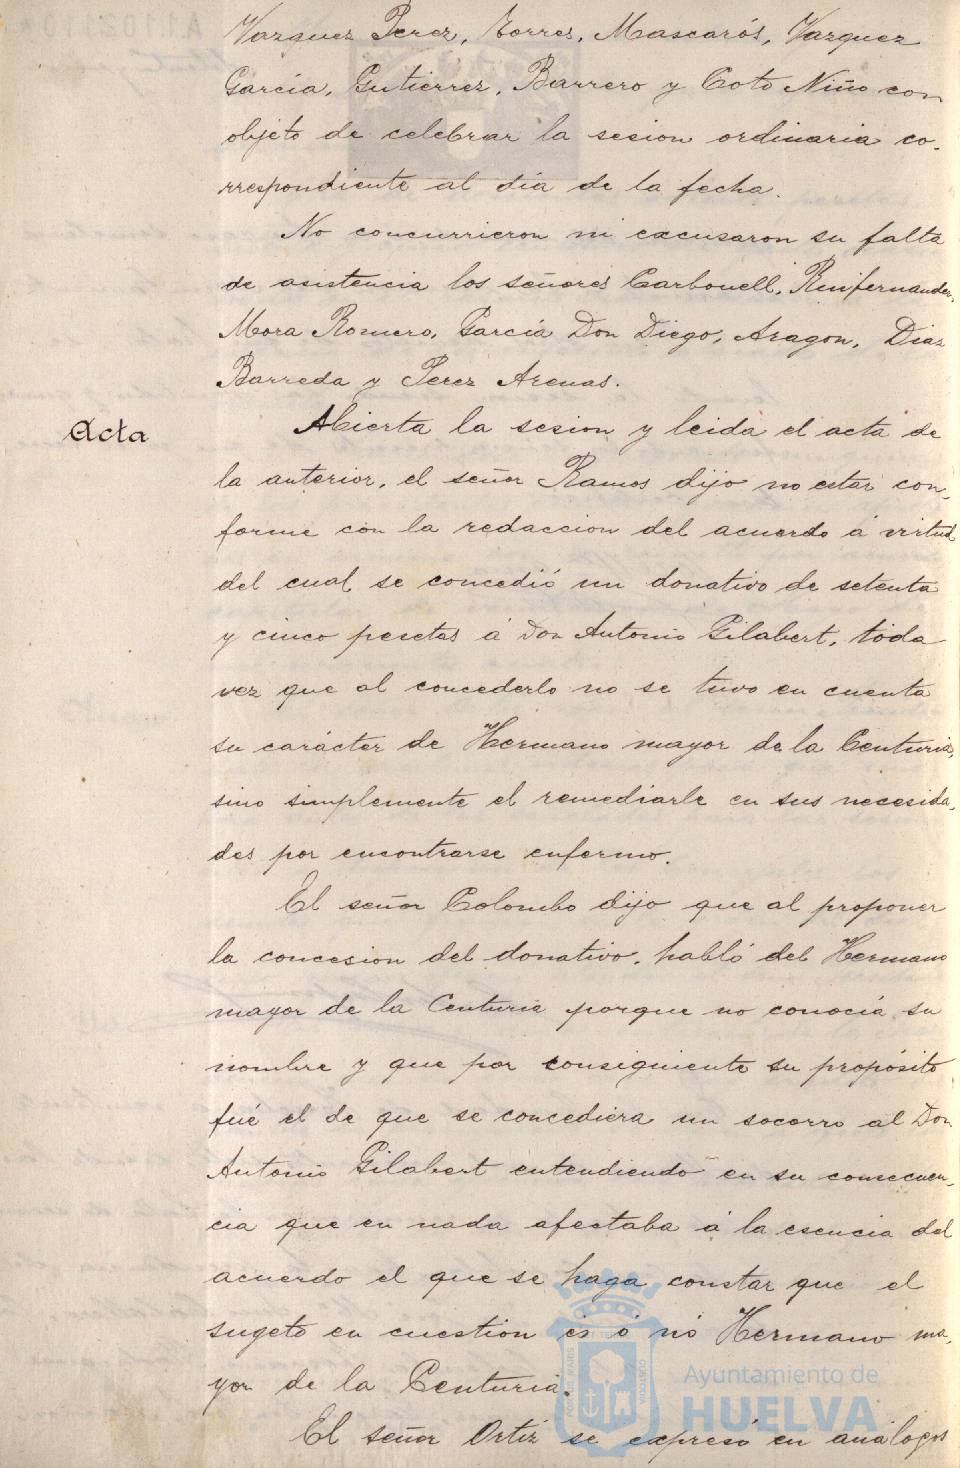 Vazquez Perez, Torres, Mascarós, Vazquez
García, Gutierrez, Barrero y Coto Niño con
objeto de celebrar la sesion ordinaria co-
rrespondiente al día de la fecha.
No concurrieron ni excusaron su falta
de asistencia los señores Carbonell, Renfernandez,
Mora Romero, García Don Diego, Aragon, Diaz
Barreda y Perez Arenas.
Acta
Abierta la sesion y leida el acta de
la anterior, el señor Ramos dijo no estar con-
forme con la redaccion del acuerdo á virtud
del cual se concedió un donativo de setenta
y cinco pesetas á Don Antonio Gilabert, toda
vez que al concederlo no se tuvo en cuenta
su carácter de Hermano mayor de la Centuria,
sino simplemente el remediarle en sus necesida-
des por encontrarse enfermo.
El señor Colombo dijo que al proponer
la concesion del donativo, habló del Hermano
mayor de la Centuria porque no conocía su
nombre y que por consiguiente su propósito
fué el de que se concediera un socorro al Don
Antonio Gilabert entendiendo en su consecuen-
cia que en nada afectaba á la esencia del
acuerdo el que se haga constar que el
sugeto en cuestion es ó nó Hermano ma-
yor de la Centuria.
El señor Ortiz se expresó en análogos
Ayuntamiento de
HUELVA